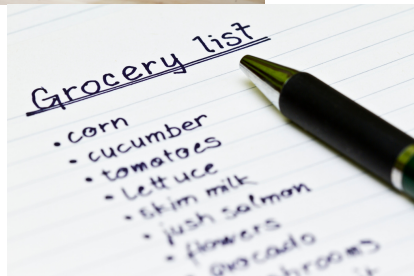 Grocery list
• corn
• cucumber
• tomatoes
• lettuce
• skim milk
• jush salmon
• flowers
• avocado